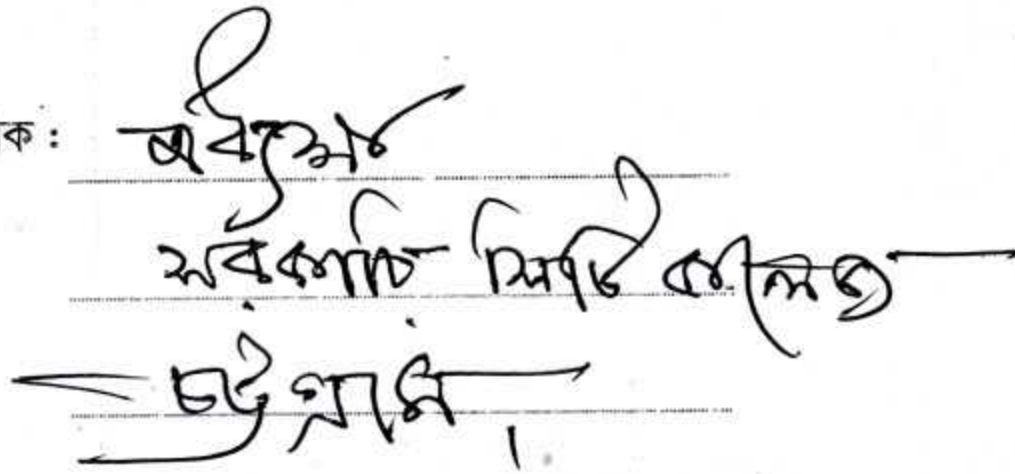 ক : অধ্যক্ষ
সরকারি সিটি কলেজ
চট্টগ্রাম